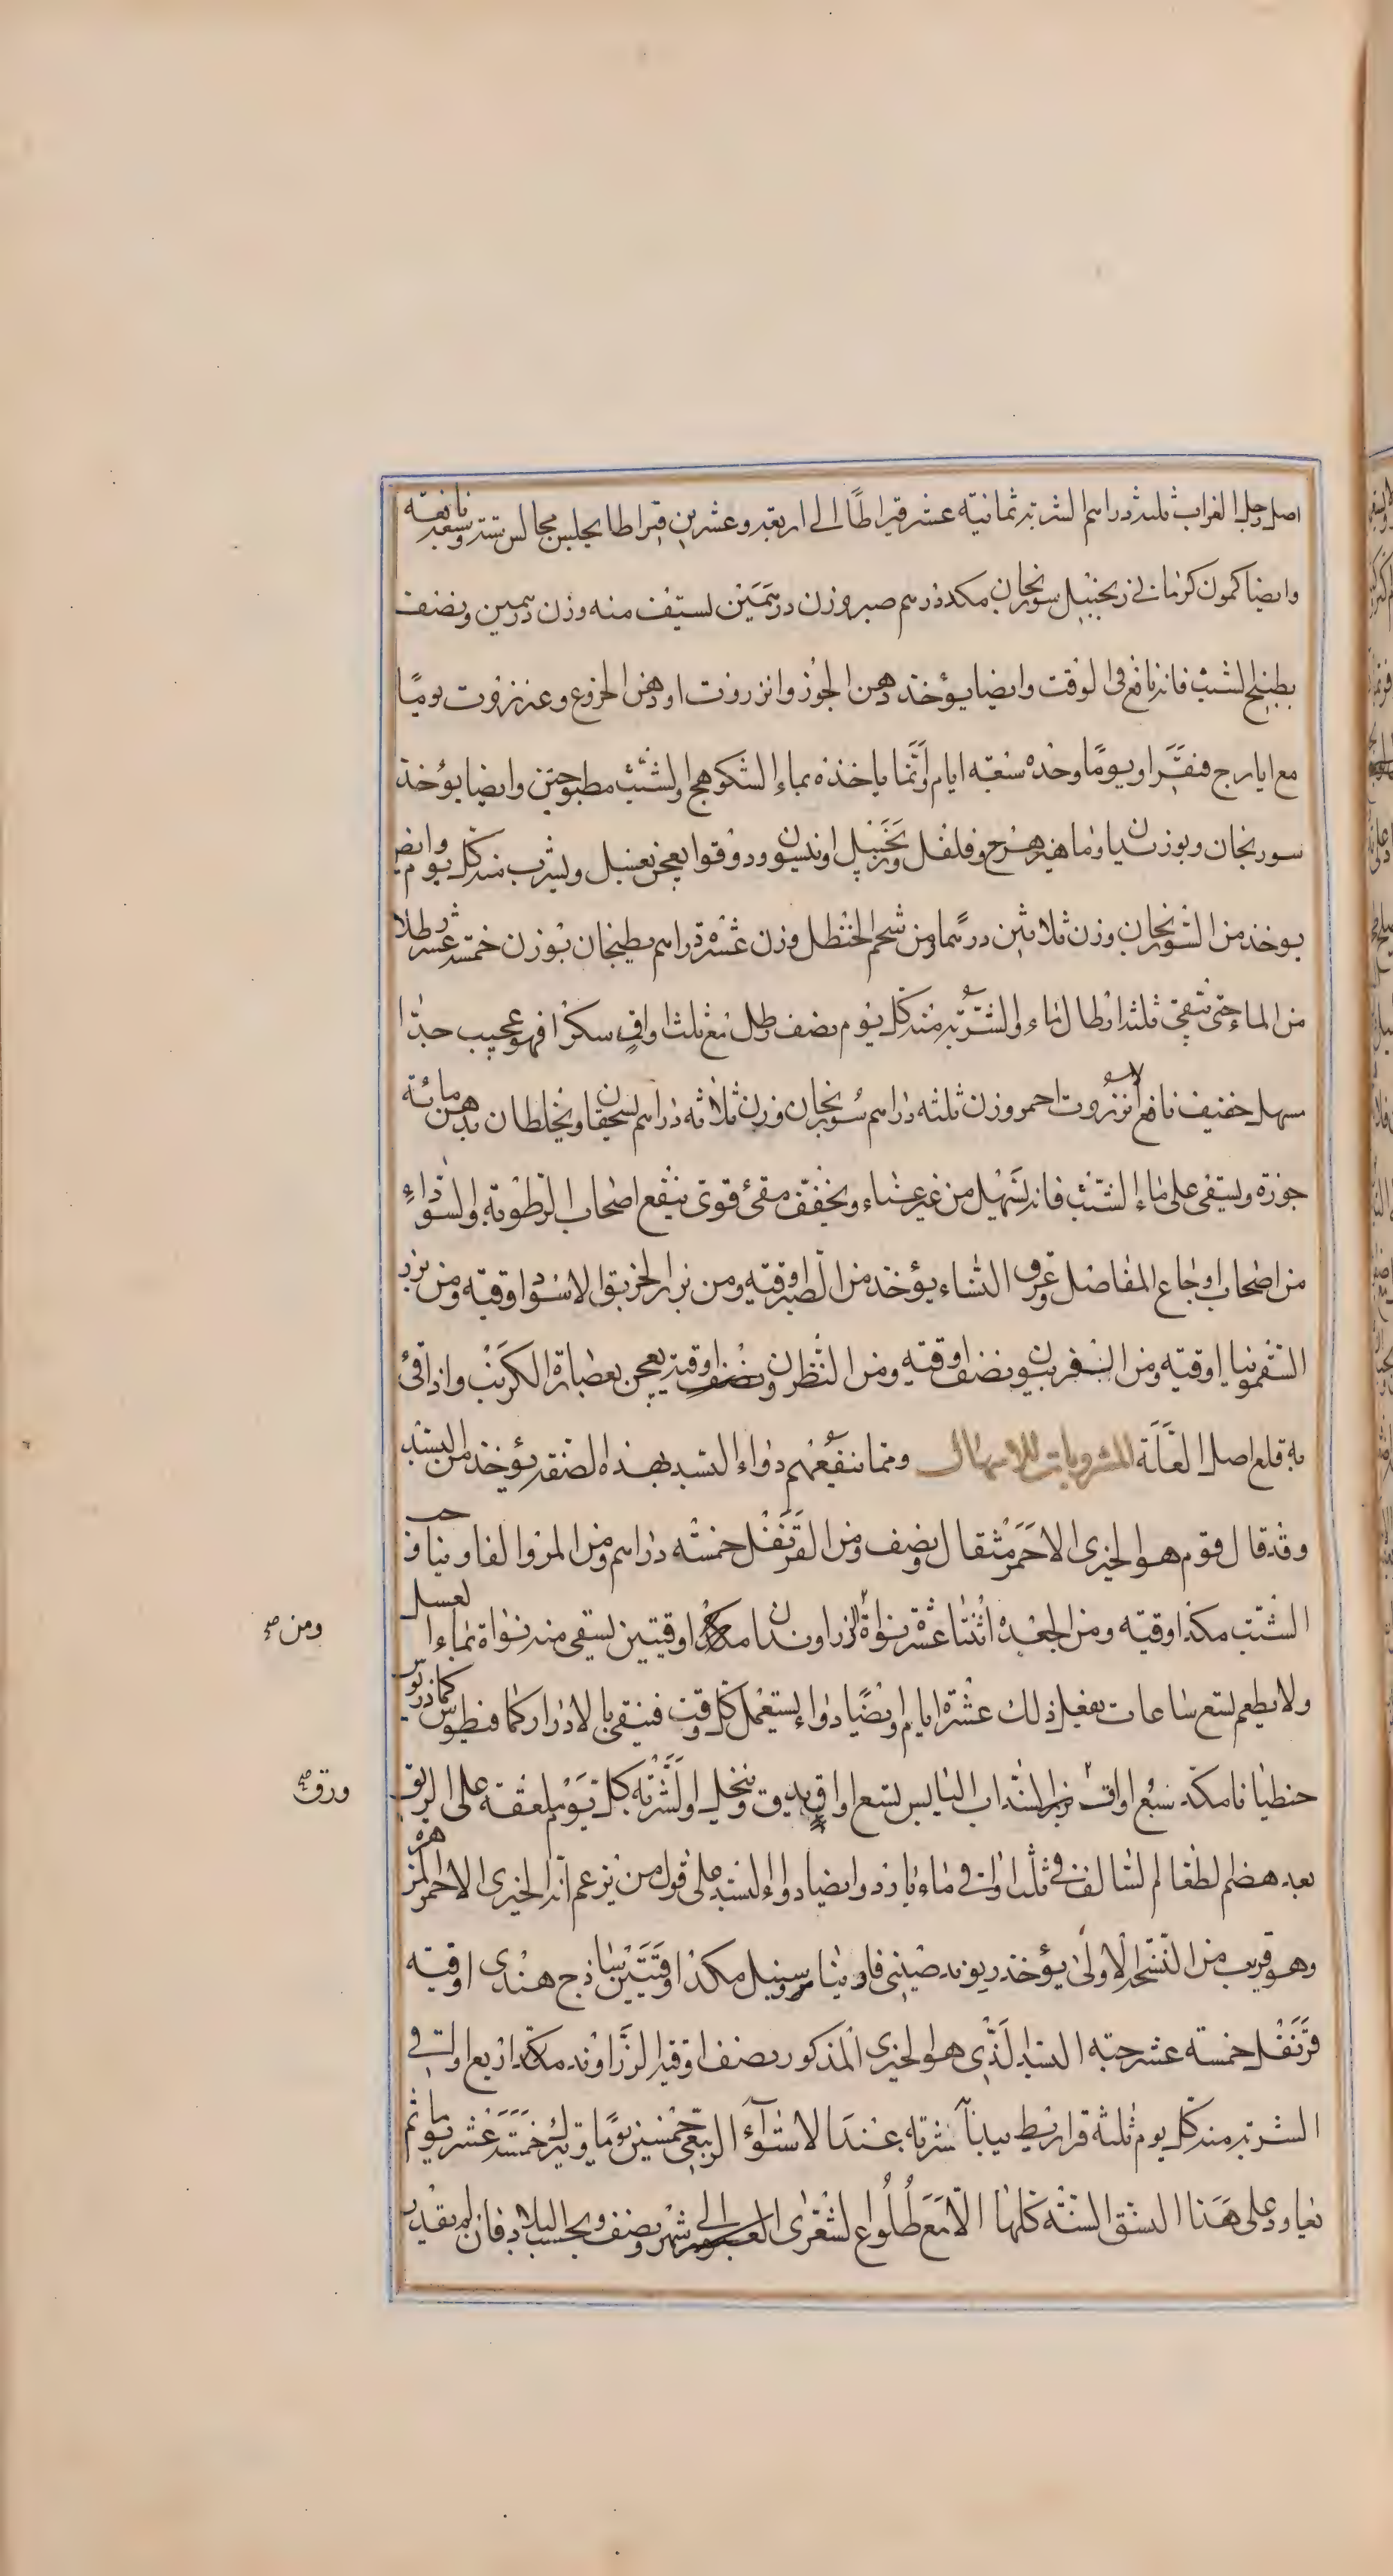 اصل رجل الغراب ثلثه دراهم الشربه ثمانية عشر قيراطًا الى اربعه وعشرين قيراطا يجلس مجالس ستة وسبعة نافعة
وايضا كمون كرماني زنجبيل سورنجان مكد درهم صبر وزن درهمين يستف منه وزن درهمين ونصف
بطبيخ الشبث فانه نافع في الوقت وايضا يؤخذ دهن الجوز وانزروت او دهن الخروع وعنزروت يومًا
مع ايارج فيقرا ويومًا وحده سبعة ايام وانما ياخذه بماء الشكوهج والشبث مطبوختين وايضا يؤخذ
سورنجان وبوزيدان وماهيزهرج وفلفل وزنجبيل وانيسون ودوقوا يعجن بعسل ويشرب منه كل يوم وايضا
يوخذ من السورنجان وزن ثلاثين درهما ومن شحم الحنظل وزن عشرة دراهم يطبخان بوزن خمسة عشر رطلا
من الماء حتى تبقى ثلثة ارطال ماء والشربة منه كل يوم نصف رطل مع ثلث اواقٍ سكرًا فهو عجيب جدًا
مسهل خفيف نافع انزروت احمر وزن ثلثه دراهم سورنجان وزن ثلاثه دراهم يسحقان ويخلطان بدهن مائة
جوزة ويسقى على ماء الشبث فانه يسهل من غير عناء ويخفف مقيء قوى ينفع اصحاب الرطوبة والسوداء
من اصحاب اوجاع المفاصل وعرق النساء يؤخذ من الصبر اوقيه ومن بزر الخربق الاسود اوقيه ومن بزر
السقمونيا اوقيه ومن الفربيون نصف اوقيه ومن النطرون نصف اوقيه يعجن بعصارة الكرنب واذا قئ
به قلع اصل العلة المشروبات للاسهال ومما ينفعهم دواء البسد بهذه الصفة يؤخذ من البسد
وقد قال قوم هو الخيرى الاحمر مثقال ونصف ومن القرنفل خمسه دراهم ومن المر والفاونيا وحب
الشبث مكد اوقيه ومن الجعده اثنتا عشرة نواة الزراوندان مكد اوقيتين يسقى منه نواة بماء العسل
ومن صح
ولا يطعم تسع ساعات يفعل ذلك عشرة ايام وايضًا دواء يستعمل كل وقت فينقي بالادرار كمافيطوس كمادريوس
حنطيانا مكد سبع اواق بزر السداب اليابس تسع اواقٍ يدق وينخل والشربة كل يوم ملعقة على الريق
ورق صح
بعد هضم الطعام السالف في ثلث اواق ماء بارد وايضا دواء البسد على قول من يزعم انه الخيرى الاحمر الزهره
وهو قريب من النسخة الاولى يؤخذ ريوند صينى فاونيا مر وسنبل مكد اوقيتين ساذج هندى اوقيه
قرنفل خمسة عشر حبه البسد الذى هو الخيرى المذكور نصف اوقيه الزراوند مكد اربع اواقي
الشربه منه كل يوم ثلثة قراريط يبدأ شربه عند الاستواء الربيعي خمسين يومًا ويترك خمسة عشر يوما ثم
يعاود على هذا النسق السنة كلها الا مع طلوع الشعرى العبور الى شهر ونصف وبحسب البلاد فان لم يقدر